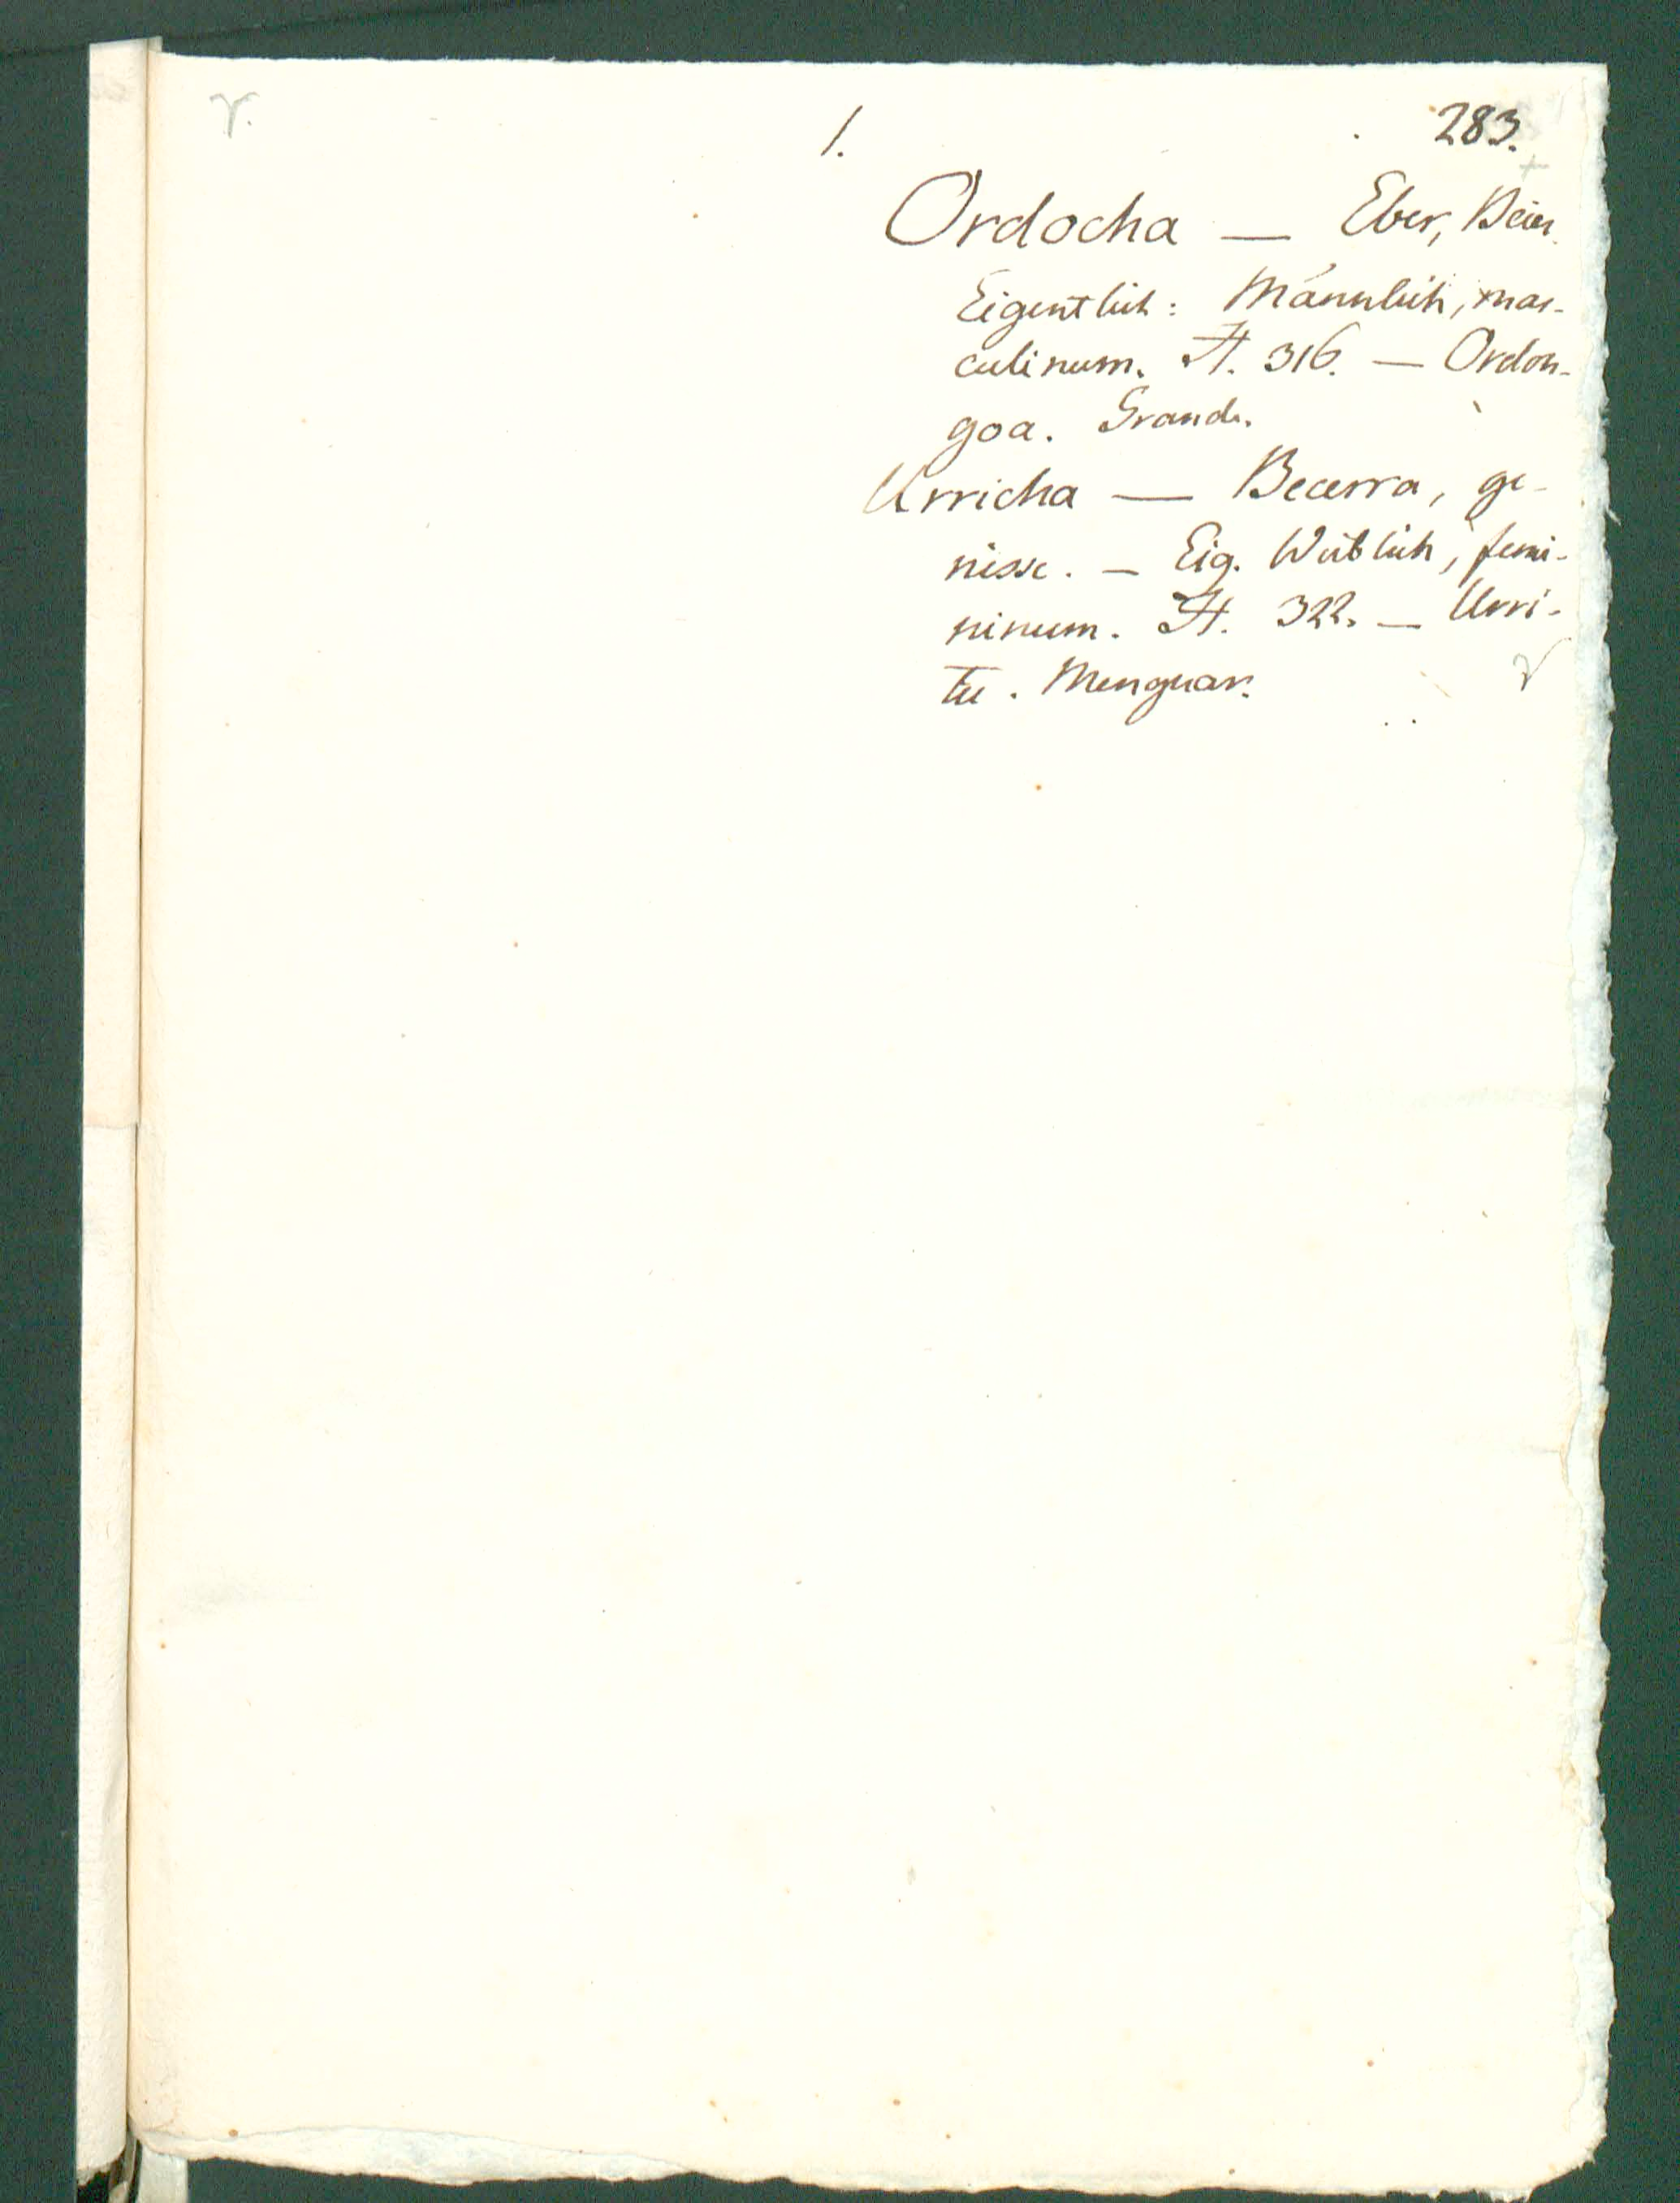 r.
1.
283.
Ordocha — Eber, Beier.
Eigentlich: Männlich, mas-
culinum. A. 316. — Ordon-
goa. Grande.
Urricha — Becerra, ge-
nisse. — Eig. Weiblich, femi-
ninum. A. 322. — Urri-
tu. Menguar.